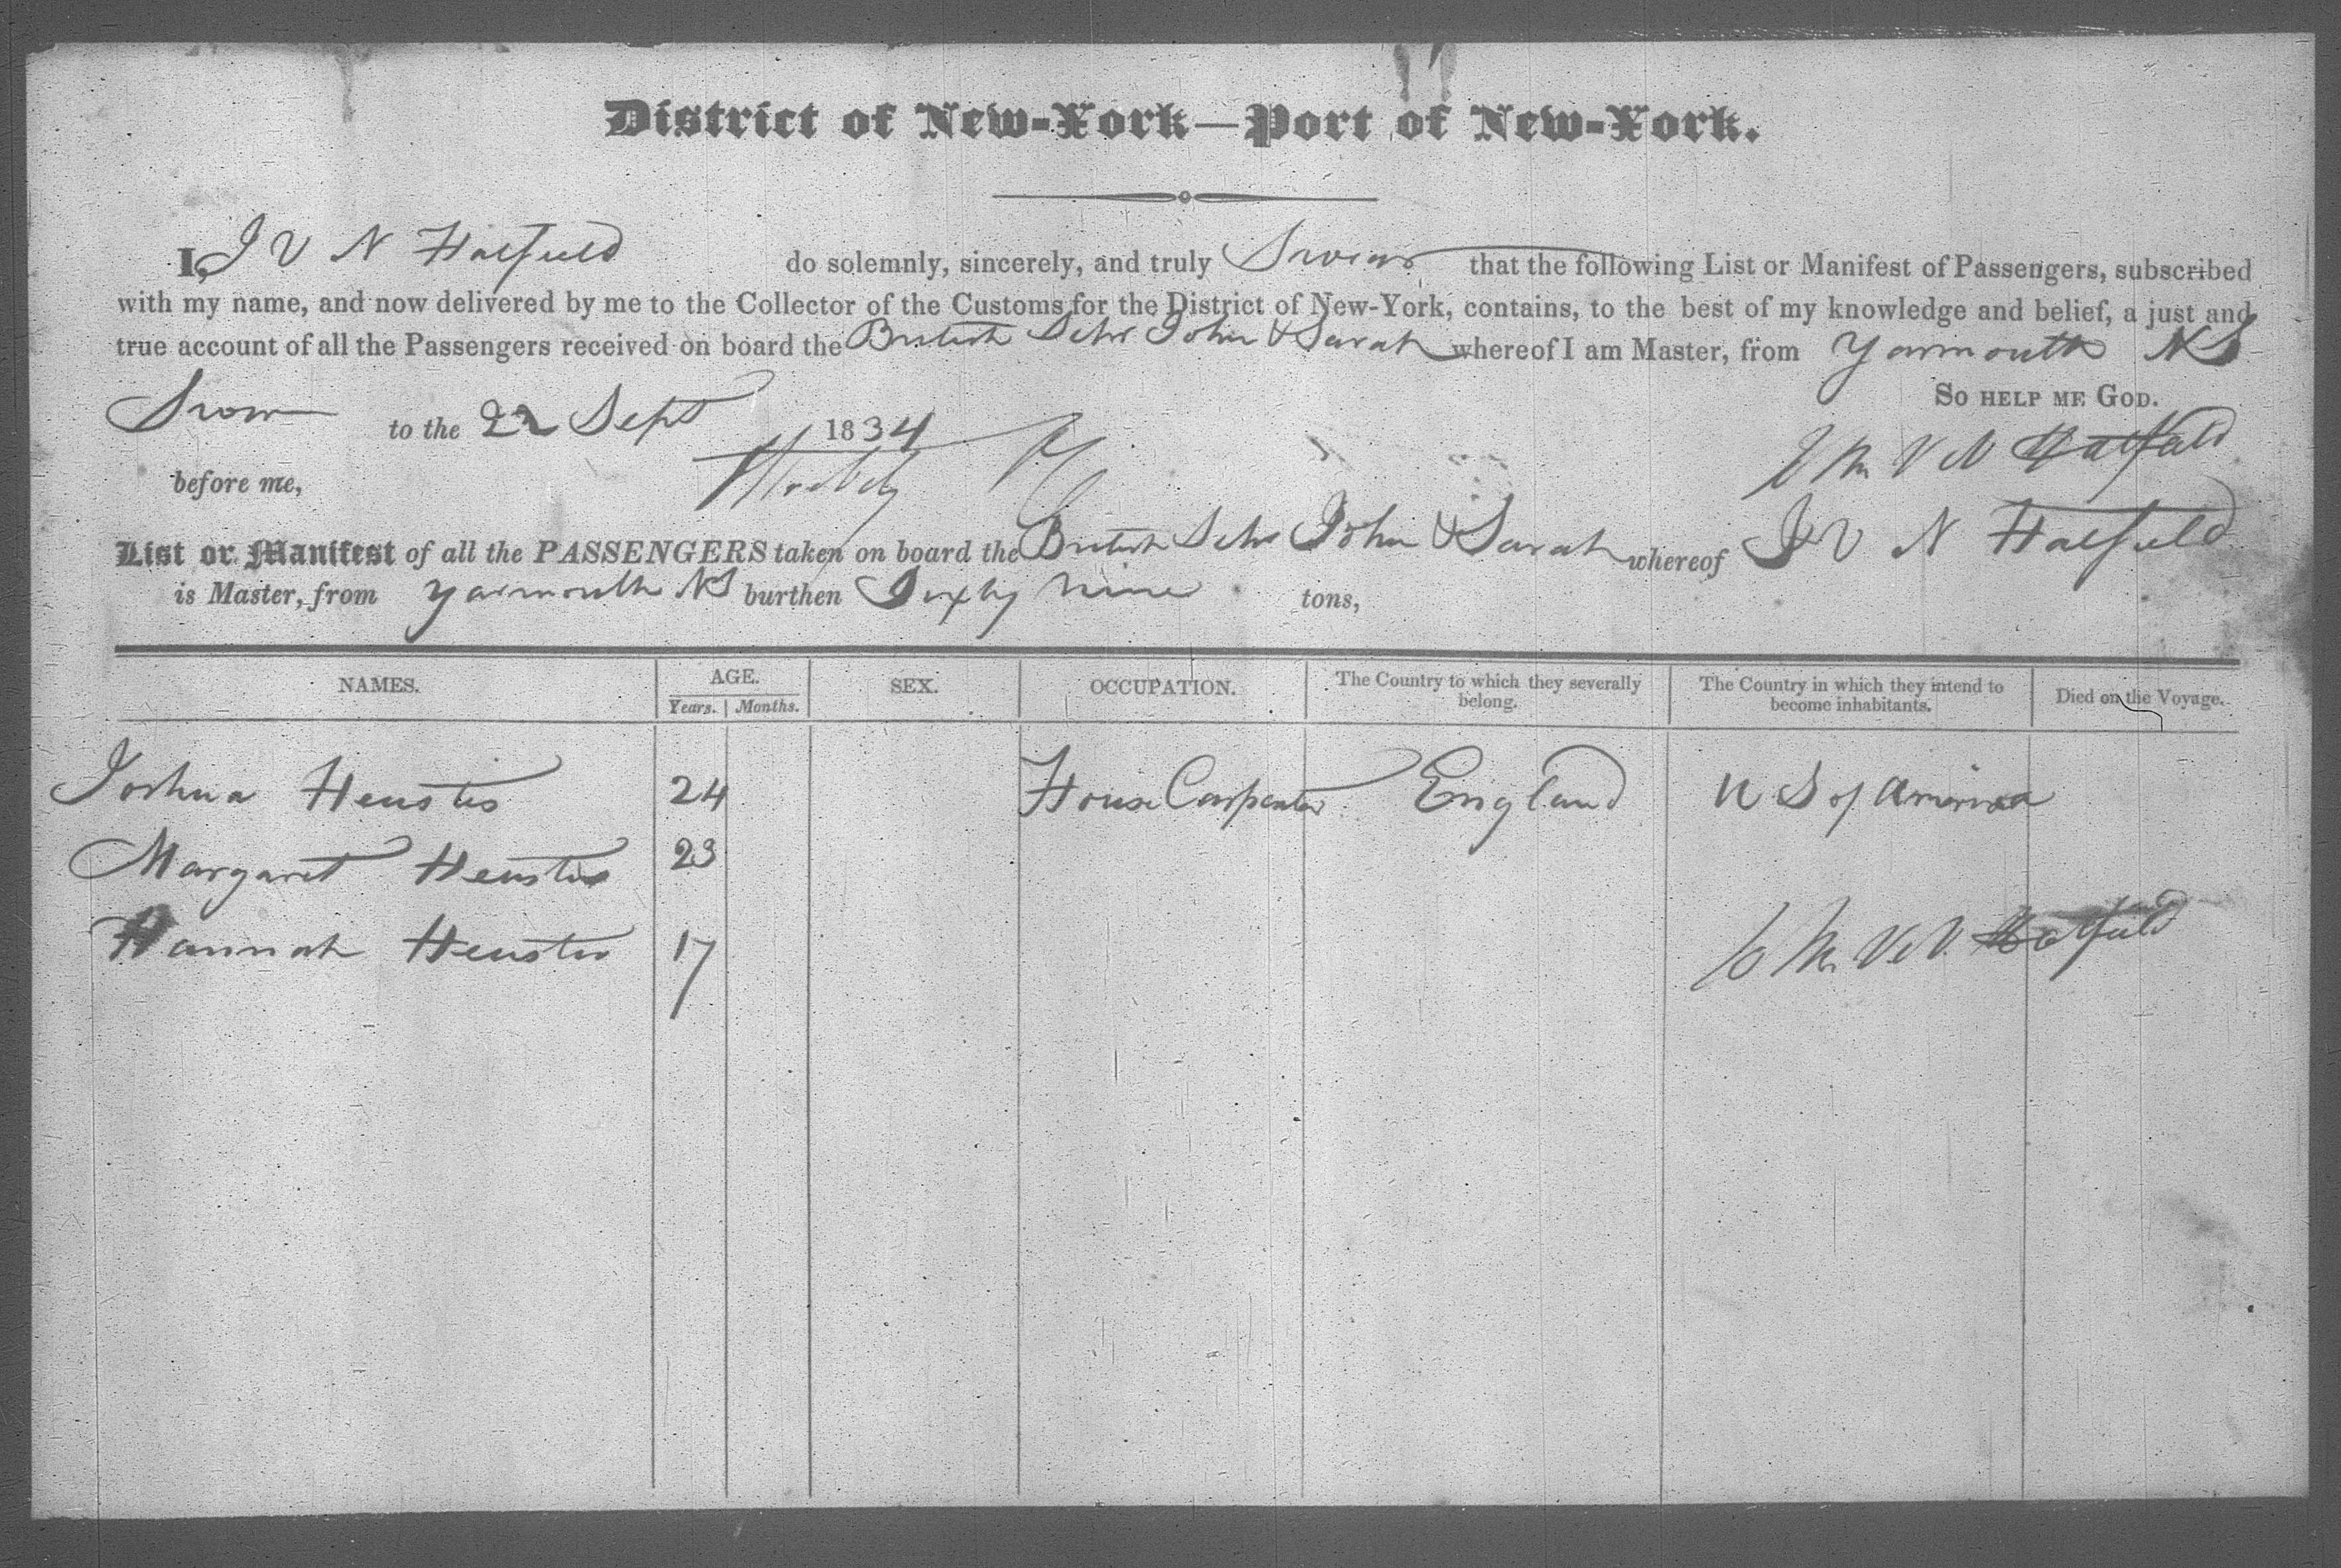 District of New-York—Port of New-York.
I, J V N Hatfield do solemnly, sincerely, and truly Swear that the following List or Manifest of Passengers, subscribed
with my name, and now delivered by me to the Collector of the Customs for the District of New-York, contains, to the best of my knowledge and belief, a just and
true account of all the Passengers received on board the British Schr John & Sarah whereof I am Master, from Yarmouth NS
So help me God.
Sworn to the 22 Sept 1834
V N Hatfield
before me,
List or Manifest of all the PASSENGERS taken on board the British Schr John & Sarah whereof J V N Hatfield
is Master, from Yarmouth NS burthen Sixty nine tons,
NAMES. AGE. SEX. OCCUPATION. The Country to which they severally belong. The Country in which they intend to become inhabitants. Died on the Voyage.
Years. Months.
Joshua Heustis 24 House Carpenter England U S of America
Margaret Heustis 23
Hannah Heustis 17
V N. Hatfield